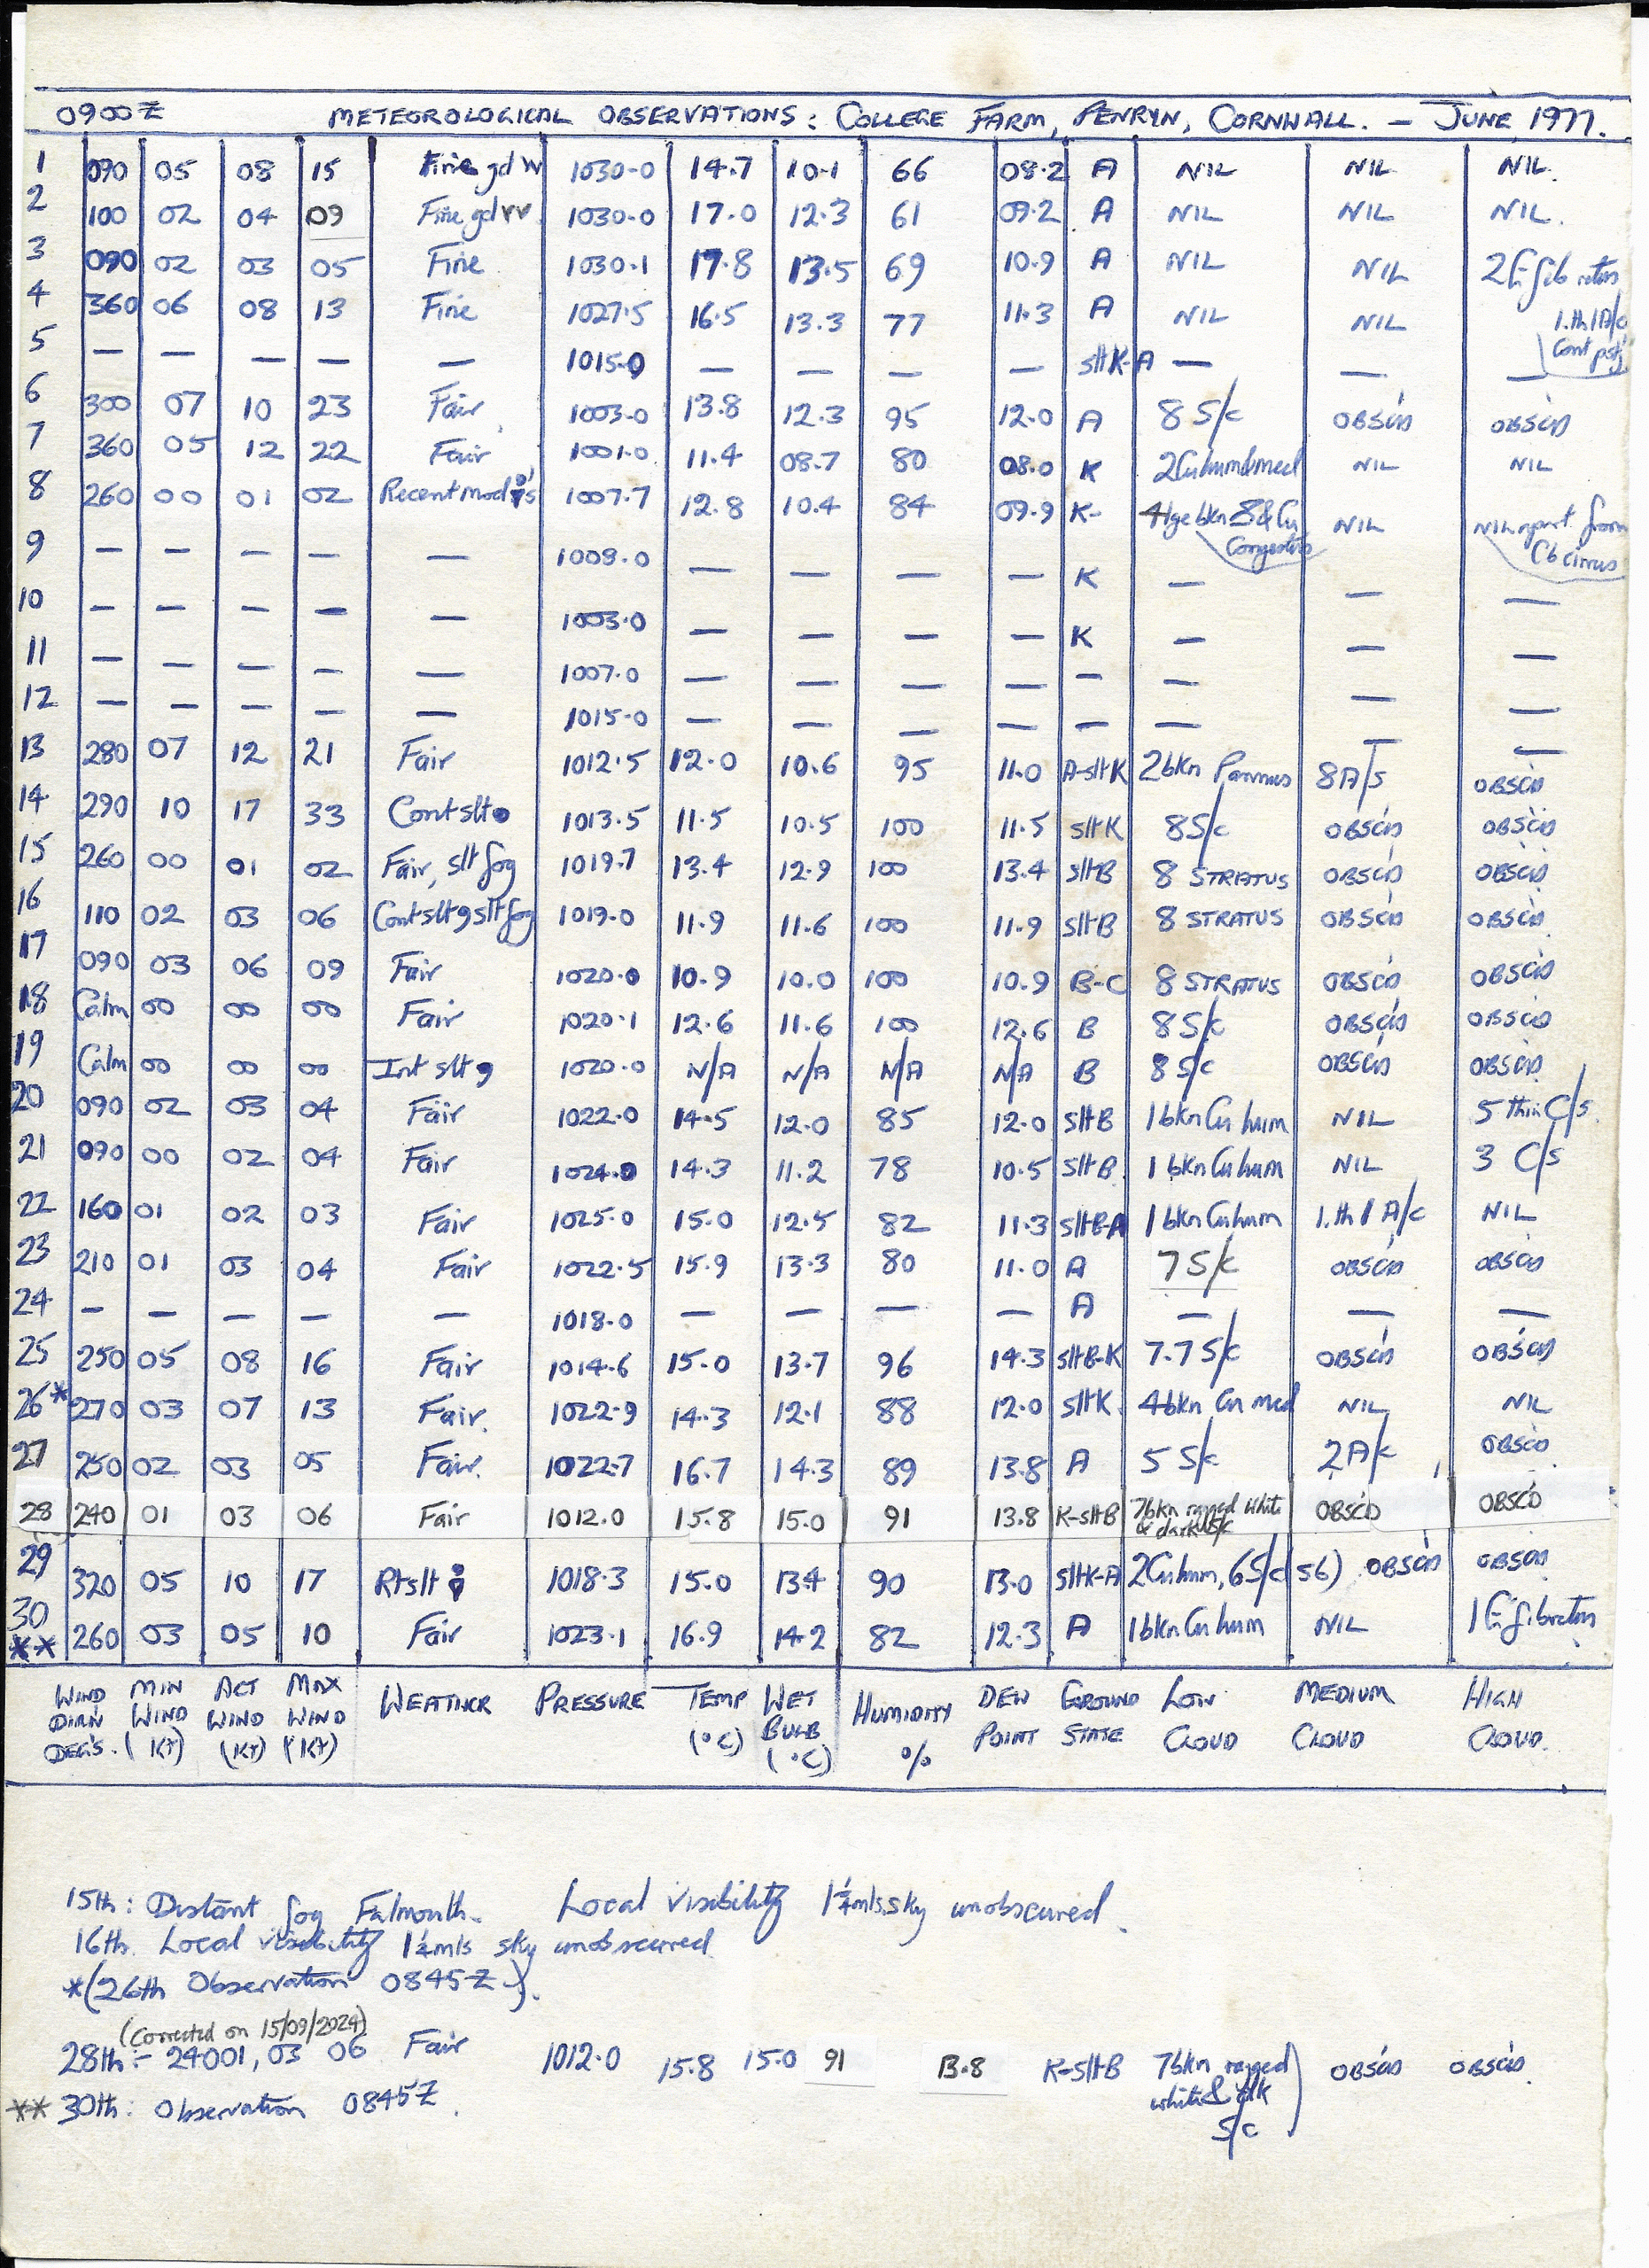 0900Z METEOROLOGICAL OBSERVATIONS: COLLEGE FARM, PENRYN, CORNWALL. — JUNE 1977.
1 090 05 08 15 Fine gd vv 1030.0 14.7 10.1 66 08.2 A NIL NIL NIL.
2 100 02 04 09 Fine gd vv 1030.0 17.0 12.3 61 09.2 A NIL NIL NIL.
3 090 02 03 05 Fine 1030.1 17.8 13.5 69 10.9 A NIL NIL 2
4 360 06 08 13 Fine 1027.5 16.5 13.3 77 11.3 A NIL NIL 1.th 1 A/c
5 — — — — — 1015.0 — — — — slt K-A — — —
6 300 07 10 23 Fair 1003.0 13.8 12.3 95 12.0 A 8 S/c OBSC'D OBSC'D
7 360 05 12 22 Fair 1001.0 11.4 08.7 80 08.0 K 2Cu hum&med NIL NIL
8 260 00 01 02 Recent mod 1007.7 12.8 10.4 84 09.9 K- 4 lge bkn & Cu Congestus NIL NIL apart from Cb cirrus
9 — — — — — 1008.0 — — — — K — — —
10 — — — — — 1003.0 — — — — K — — —
11 — — — — — 1007.0 — — — — — — — —
12 — — — — — 1015.0 — — — — — — — —
13 280 07 12 21 Fair 1012.5 12.0 10.6 95 11.0 A-slt K 2 bkn Pannus 8 A/s OBSC'D
14 290 10 17 33 Cont slt 1013.5 11.5 10.5 100 11.5 slt K 8 S/c OBSC'D OBSC'D
15 260 00 01 02 Fair, slt fog 1019.7 13.4 12.9 100 13.4 slt B 8 STRATUS OBSC'D OBSC'D
16 110 02 03 06 Cont slt 9 slt fog 1019.0 11.9 11.6 100 11.9 slt B 8 STRATUS OBSC'D OBSC'D
17 090 03 06 09 Fair 1020.0 10.9 10.0 100 10.9 B-C 8 STRATUS OBSC'D OBSC'D
18 Calm 00 00 00 Fair 1020.1 12.6 11.6 100 12.6 B 8 S/c OBSC'D OBSC'D
19 Calm 00 00 00 Int slt 9 1020.0 N/A N/A N/A N/A B 8 S/c OBSC'D OBSC'D
20 090 02 03 04 Fair 1022.0 14.5 12.0 85 12.0 slt B 1 bkn Cu hum NIL 5 thin C/s.
21 090 00 02 04 Fair 1024.0 14.3 11.2 78 10.5 slt B 1 bkn Cu hum NIL 3 C/s
22 160 01 02 03 Fair 1025.0 15.0 12.5 82 11.3 slt B-A 1 bkn Cu hum 1.th 1 A/c NIL
23 210 01 03 04 Fair 1022.5 15.9 13.3 80 11.0 A 7 S/c OBSC'D OBSC'D
24 — — — — — 1018.0 — — — — A — — —
25 250 05 08 16 Fair 1014.6 15.0 13.7 96 14.3 slt B-K 7.7 S/c OBSC'D OBSC'D
26* 270 03 07 13 Fair. 1022.9 14.3 12.1 88 12.0 slt K 4 bkn Cu med NIL NIL
27 250 02 03 05 Fair. 1022.7 16.7 14.3 89 13.8 A 5 S/c 2 A/c OBSC'D
28 240 01 03 06 Fair 1012.0 15.8 15.0 91 13.8 K-slt B 7 bkn ragged white & dark S/c OBSC'D OBSC'D
29 320 05 10 17 Rt slt 1018.3 15.0 13.4 90 13.0 slt K-A 2Cu hum, 6 S/c (56) OBSC'D OBSC'D
30 ** 260 03 05 10 Fair 1023.1 16.9 14.2 82 12.3 A 1 bkn Cu hum NIL 1 Ci fibratus
WIND DIRN DEG'S. MIN WIND (KT) ACT WIND (KT) MAX WIND (KT) WEATHER PRESSURE TEMP (°C) WET BULB (°C) HUMIDITY % DEW POINT GROUND STATE LOW CLOUD MEDIUM CLOUD HIGH CLOUD.
15th: Distant fog Falmouth. Local visibility 1¼mls. sky unobscured.
16th. Local visibility 1¼mls sky unobscured
*(26th Observation 0845Z).
(Corrected on 15/09/2024)
28th:- 24001, 03 06 Fair 1012.0 15.8 15.0 91 13.8 K-slt B 7 bkn ragged white & dk S/c OBSC'D OBSC'D.
** 30th: Observation 0845Z.